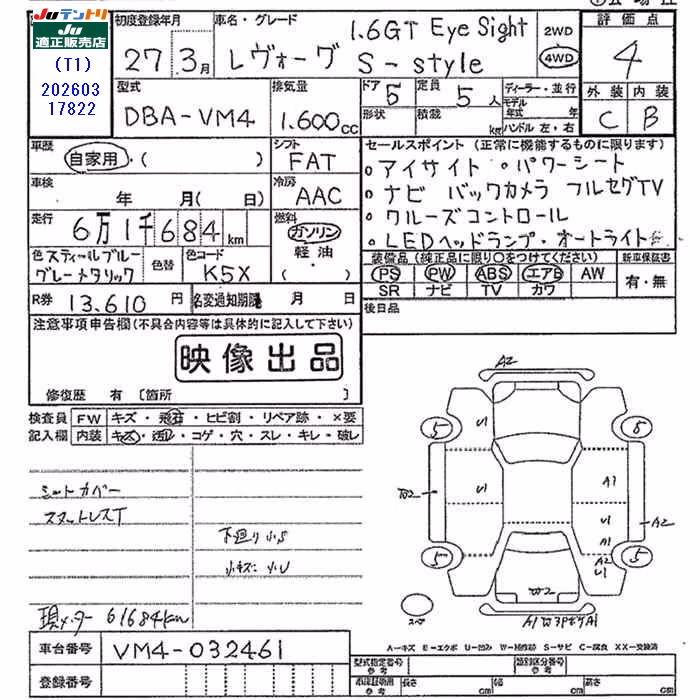 Juテントリ
Ju
適正販売店
(T1)
202603
17822
初度登録年月
27 3月
車名・グレード
レヴォーグ
1.6GT Eye Sight
S-style
2WD
4WD
評価点
4
外装 内装
C B
型式
DBA-VM4
排気量
1.600cc
ドア
5
定員
5人
形状
積載
kg
ディーラー・並行
モデル年式 年
ハンドル 左・右
車歴
自家用・( )
シフト
FAT
車検
年 月( 日)
冷房
AAC
走行
6万1千684km
燃料
ガソリン
軽油
・( )
色 スティールブルー
グレーメタリック
色替
色コード
K5X
R券 13.610円
名変通知期限 月 日
セールスポイント(正常に機能するものに限ります)
。アイサイト 。パワーシート
。ナビ バックカメラ フルセグTV
。クルーズコントロール
。LEDヘッドランプ・オートライト
装備品(純正品に限り○をつけてください)
PS PW ABS エアB AW
SR ナビ TV カワ
新車保証書
有・無
後日品
注意事項申告欄(不具合内容等は具体的に記入して下さい)
映像出品
修復歴 有 〔箇所 〕
検査員
記入欄
FW キズ・飛石・ヒビ割・リペア跡・×要
内装 キズ・汚レ・コゲ・穴・スレ・キレ・破レ
シートカバー
スマートレスT
下廻り小S
小キズ 小U
現メーター 61684km
A2
U1
5
5
W2
U1
A1
U1
A1
A2
A2
U1
5
5
W2
スペア
A1
車台番号 VM4-032461
登録番号
A-キズ E-エクボ U-凹ミ W-補修跡 S-サビ C-腐食 XX-交換済
型式指定番号
参考
類別区分番号
参考
車庫証明用
参考
長さ cm
幅 cm
高さ cm